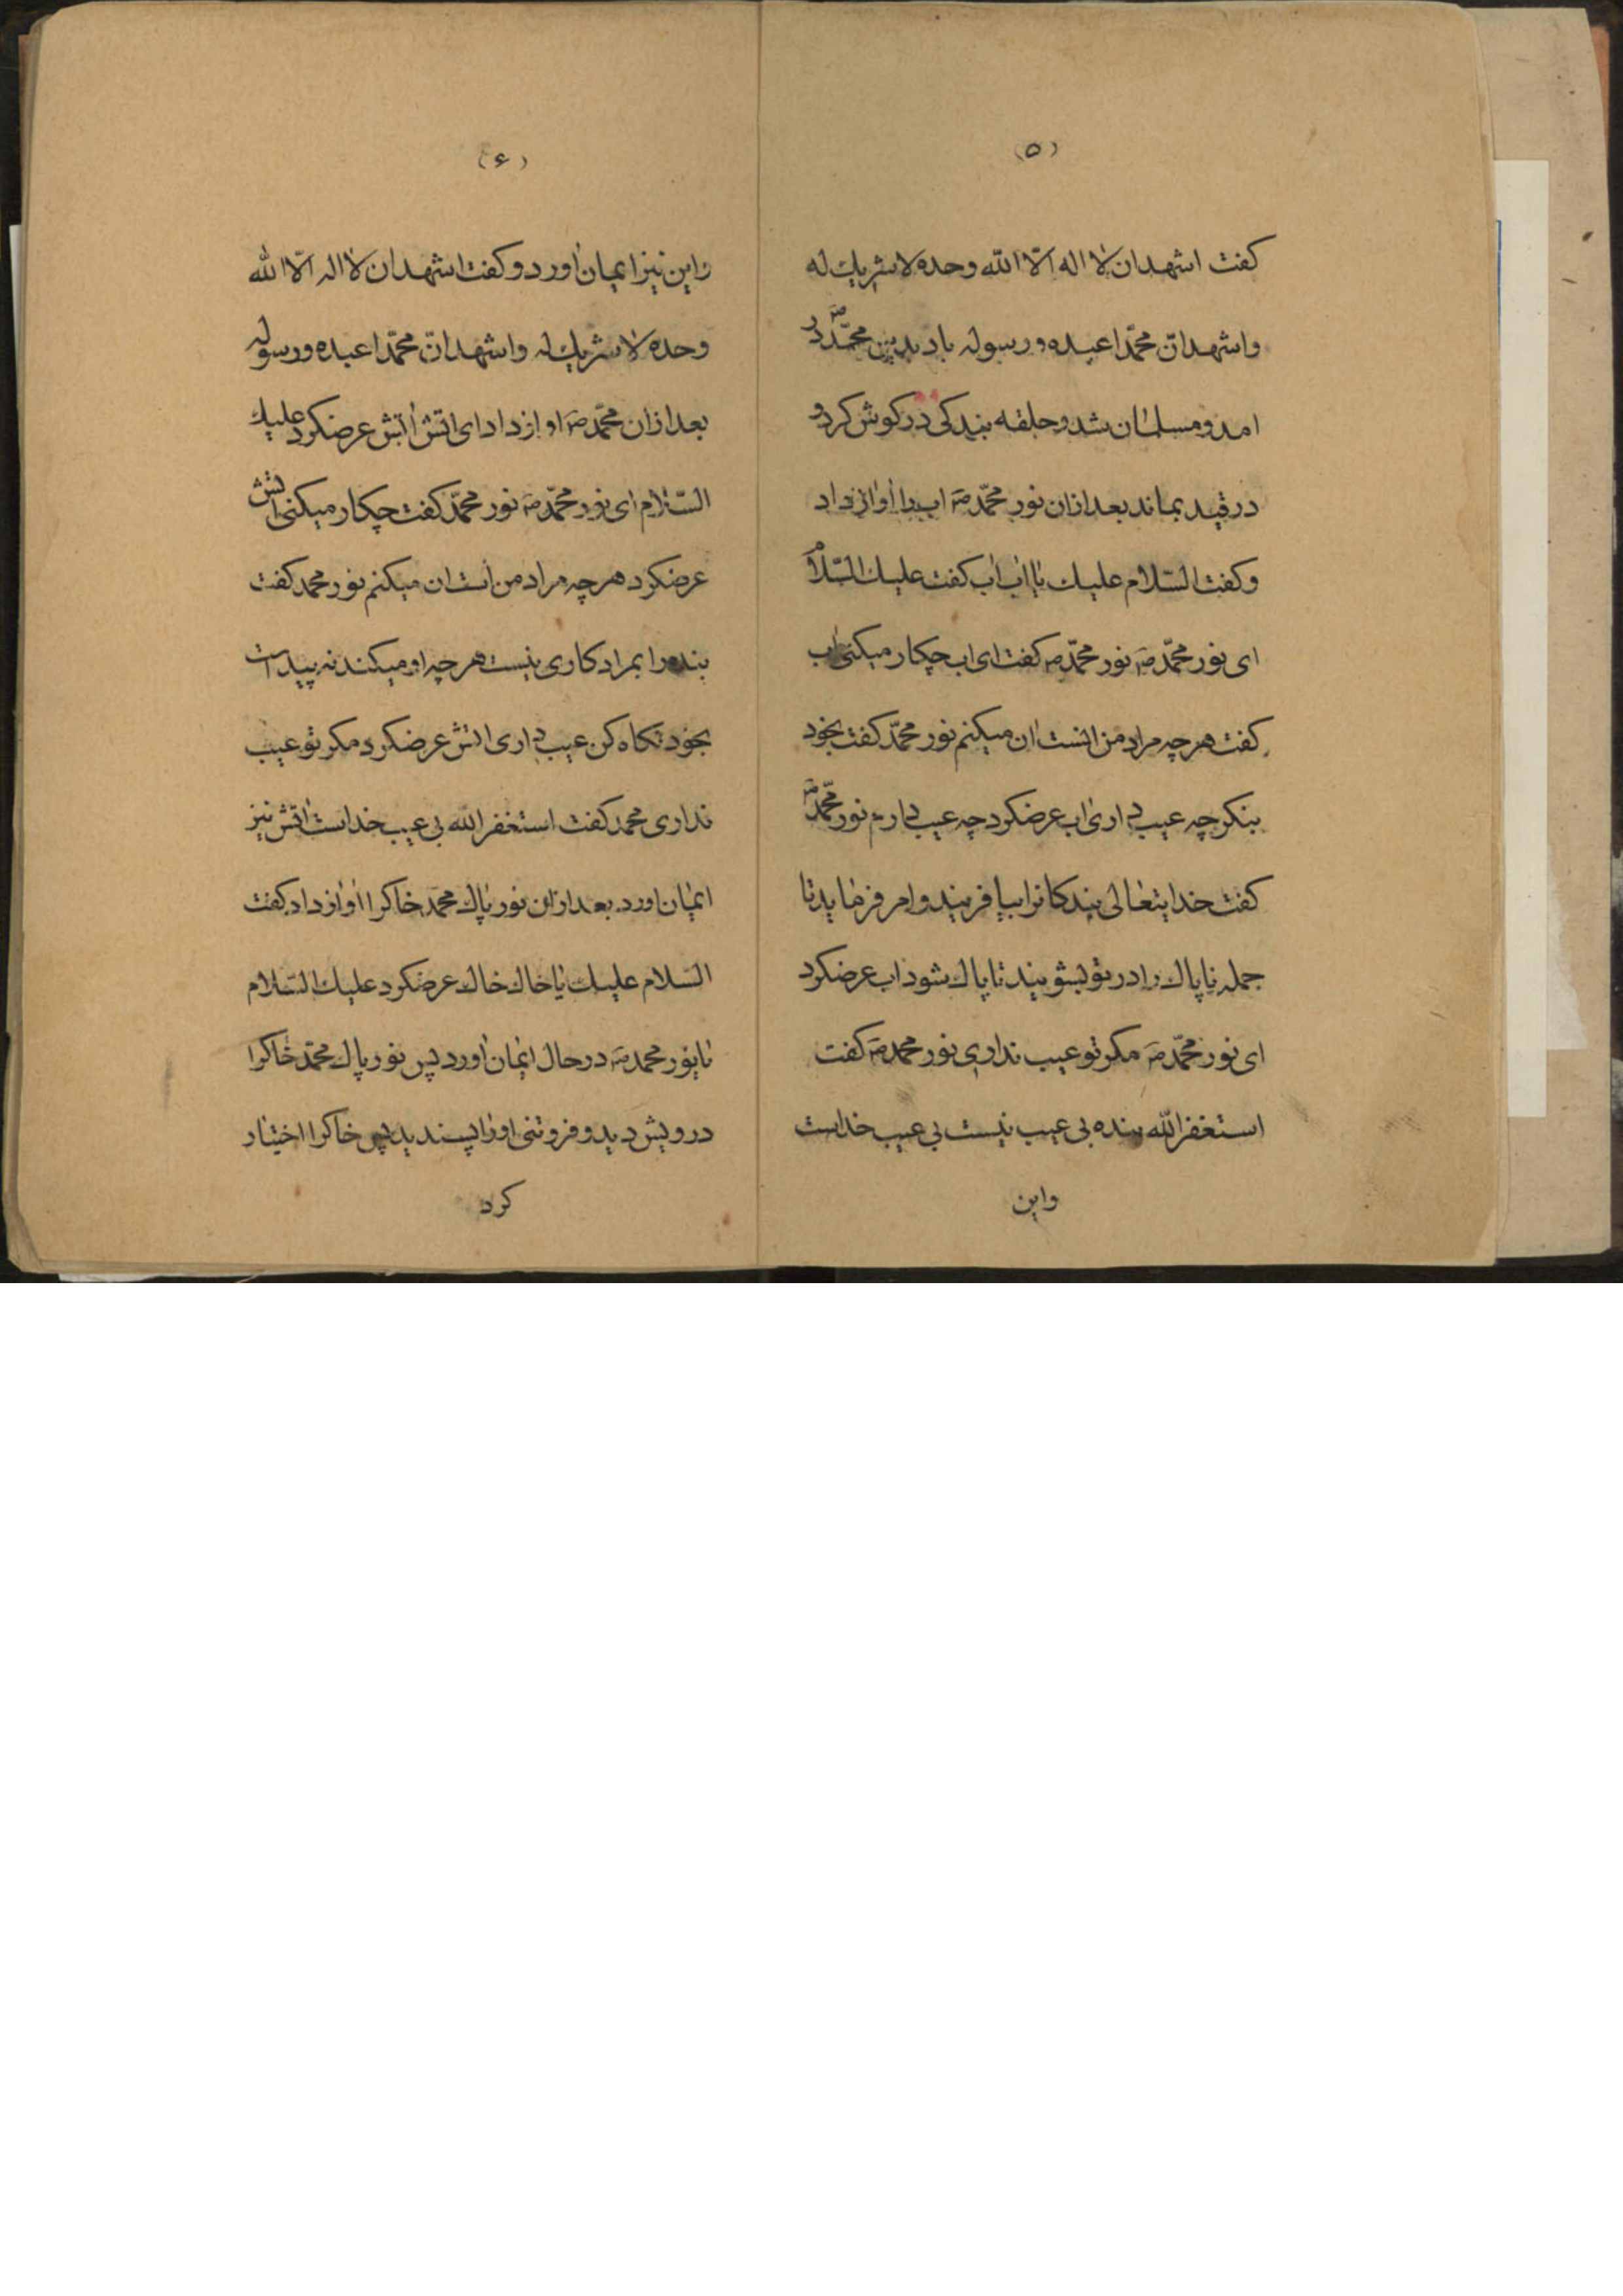 (۵)
کفت اشهد ان لا اله الّا الله وحده لا شریك له
و اشهد انّ محمّدا عبده و رسوله باد بدین محمّد ص در
امد و مسلمان شد و حلقه بندکی در کوش کرد و
در قید بماند بعد ازان نور محمّد ص اب را اواز داد
و کفت السّلام علیك یا اب اب کفت علیك السّلام
ای نور محمّد ص نور محمّد ص کفت ای اب چکار میکنی اب
کفت هر چه مراد من انست ان میکنم نور محمّد کفت بخود
بنکر چه عیب داری اب عرضکرد چه عیب دارم نور محمّد ص
کفت خدایتعالی بندکانرا بیافریند و امر فرماید تا
جمله ناپاك را در تو بشویند تا پاك شود اب عرضکرد
ای نور محمّد ص مکر تو عیب نداری نور محمد ص کفت
استغفر الله بنده بی عیب نیست بی عیب خداست
و این
(۶)
و این نیز ایمان اورد و کفت اشهد ان لا اله الّا الله
وحده لا شریك له و اشهد انّ محمّدا عبده و رسوله
بعد ازان محمّد ص اواز داد ای اتش اتش عرضکرد علیك
السّلام ای نور محمّد ص نور محمّد کفت چکار میکنی اتش
عرضکرد هر چه مراد من است ان میکنم نور محمد کفت
بنده را بمراد کاری نیست هر چه او میکند نه پیداست
بخود نکاه کن عیب داری اتش عرضکرد مکر تو عیب
نداری محمد کفت استغفر الله بی عیب خداست اتش نیز
ایمان اورد بعد ازان نور پاك محمّد خاکرا اواز داد کفت
السّلام علیك یا خاك خاك عرضکرد علیك السّلام
یا نور محمد ص در حال ایمان اورد پس نور پاك محمّد خاکرا
درویش دید و فروتنی او را پسندید پس خاکرا اختیار
کرد